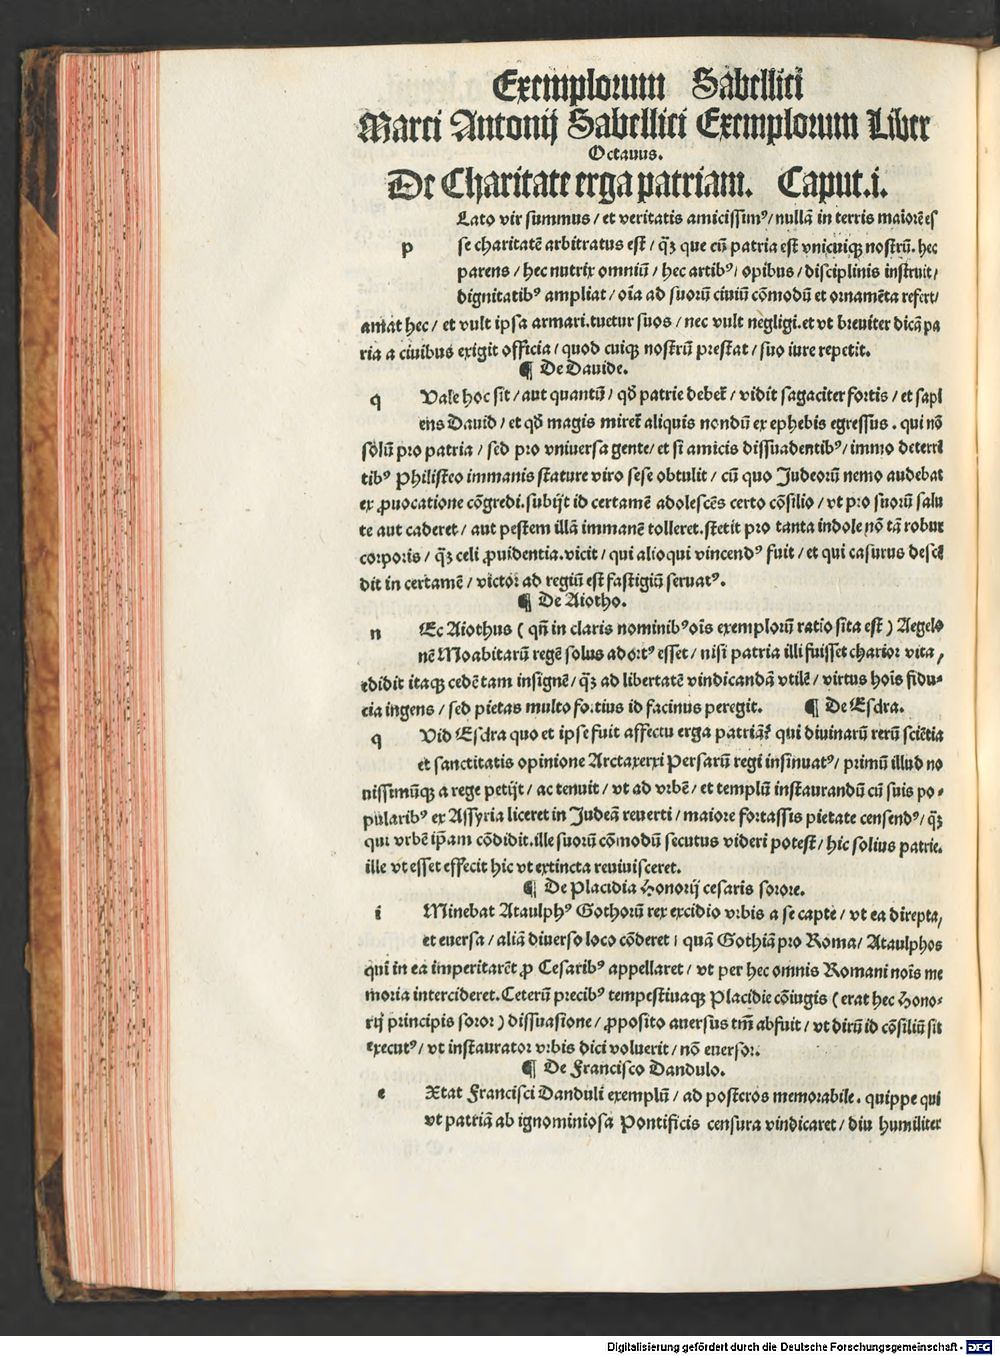 Exemplorum Sabellici
Marci Antonij Sabellici Exemplorum Liber
Octauus.
De Charitate erga patriam. Caput.i.
p Lato vir summus / et veritatis amicissimꝰ / nullā in terris maiorē es
se charitatē arbitratus est / qȝ̄ que cū patria est vnicuiqȝ nostrū. hec
parens / hec nutrix omniū / hec artibꝰ / opibus / disciplinis instruit /
dignitatibꝰ ampliat / oīa ad suorū ciuiū cōmodū et ornamēta refert /
amat hec / et vult ipsa armari. tuetur suos / nec vult negligi. et vt breuiter dicā pa
ria a ciuibus exigit officia / quod cuiqȝ nostrū prestat / suo iure repetit.
¶ De Dauide.
q Vale hoc sit / aut quantū / qđ patrie debet̄ / vidit sagaciter fortis / et sapi
ens Dauid / et qđ magis miret̄ aliquis nondū ex ephebis egressus . qui nō
solū pro patria / sed pro vniuersa gente / et si amicis dissuadentibꝰ / immo deterri
tibꝰ Philisteo immanis stature viro sese obtulit / cū quo Judeorū nemo audebat
ex ꝓuocatione cōgredi. subijt id certamē adolescēs certo cōsilio / vt pro suorū salu
te aut caderet / aut pestem illā immanē tolleret. stetit pro tanta indole nō tā robur
corporis / qȝ̄ celi ꝓuidentia. vicit / qui alioqui vincendꝰ fuit / et qui casurus descē
dit in certamē / victor ad regiū est fastigiū seruatꝰ.
¶ De Aiotho.
n Ec Aiothus ( qn̄ in claris nominibꝰ oīs exemplorū ratio sita est ) Aegelo
nē Moabitarū regē solus adortꝰ esset / nisi patria illi fuisset charior vita,
edidit itaqȝ cedē tam insignē / qȝ̄ ad libertatē vindicandā vtilē / virtus hoīs fidu-
cia ingens / sed pietas multo fortius id facinus peregit. ¶ De Esdra.
q Vid Esdra quo et ipse fuit affectu erga patriā? qui diuinarū rerū sciētia
et sanctitatis opinione Arctaxerxi Persarū regi insinuatꝰ / primū illud no
nissimūqȝ a rege petijt / ac tenuit / vt ad vrbē / et templū instaurandū cū suis po-
pularibꝰ ex Assyria liceret in Judeā reuerti / maiore fortassis pietate censendꝰ / qȝ̄
qui vrbē ip̄am cōdidit. ille suorū cōmodū secutus videri potest / hic solius patrie.
ille vt esset effecit hic vt extincta reuiuisceret.
¶ De Placidia Honorij cesaris sorore.
i Minebat Ataulphꝰ Gothorū rex excidio vrbis a se capte / vt ea direpta,
et euersa / aliā diuerso loco cōderet / quā Gothiā pro Roma / Ataulphos
qui in ea imperitarēt ꝓ Cesaribꝰ appellaret / vt per hec omnis Romani noīs me
moria intercideret. Ceterū precibꝰ tempestiuaqȝ Placidie cōiugis ( erat hec Hono-
rij principis soror ) dissuasione / ꝓposito auersus tm̄ abfuit / vt dirū id cōsiliū sit
executꝰ / vt instaurator vrbis dici voluerit / nō euersor.
¶ De Francisco Dandulo.
e Xtat Francisci Danduli exemplū / ad posteros memorabile. quippe qui
vt patriā ab ignominiosa Pontificis censura vindicaret / diu humiliter
Digitalisierung gefördert durch die Deutsche Forschungsgemeinschaft - DFG